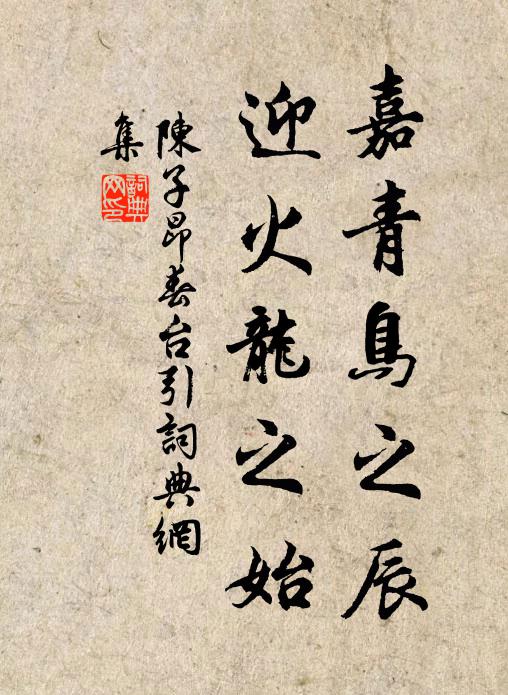 嘉青鳥之辰
迎火龍之始
陳子昂春台引詞典網
集
詞典
网印